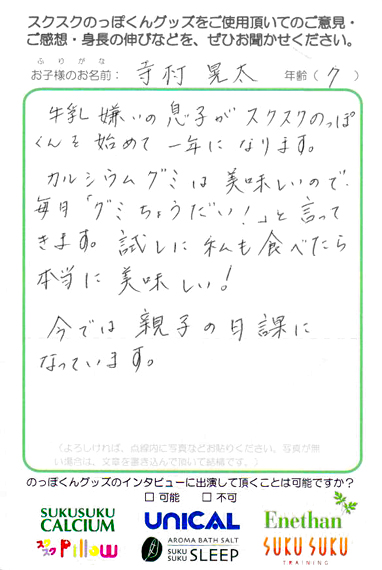 スクスクのっぽくんグッズをご使用頂いてのご意見・
ご感想・身長の伸びなどを、ぜひお聞かせください。
ふりがな
お子様のお名前: 寺村 晃太 年齢(7)
牛乳嫌いの息子がスクスクのっぽ
くんを始めて一年になります。
カルシウムグミは美味しいので、
毎月「グミちょうだい!」と言って
きます。試しに私も食べたら
本当に美味しい!
今では親子の日課に
なっています。
(よろしければ、点線内に写真などお貼りください、写真が無
い場合は、文章を書き込んで頂いて結構です。)
のっぽくんグッズのインタビューに出演して頂くことは可能ですか?
□ 可能 □ 不可
SUKUSUKU
CALCIUM
UNICAL
Enethan
スクスク Pillow
AROMA BATH SALT
SUKU
SUKU SLEEP
SUKU SUKU
TRAINING